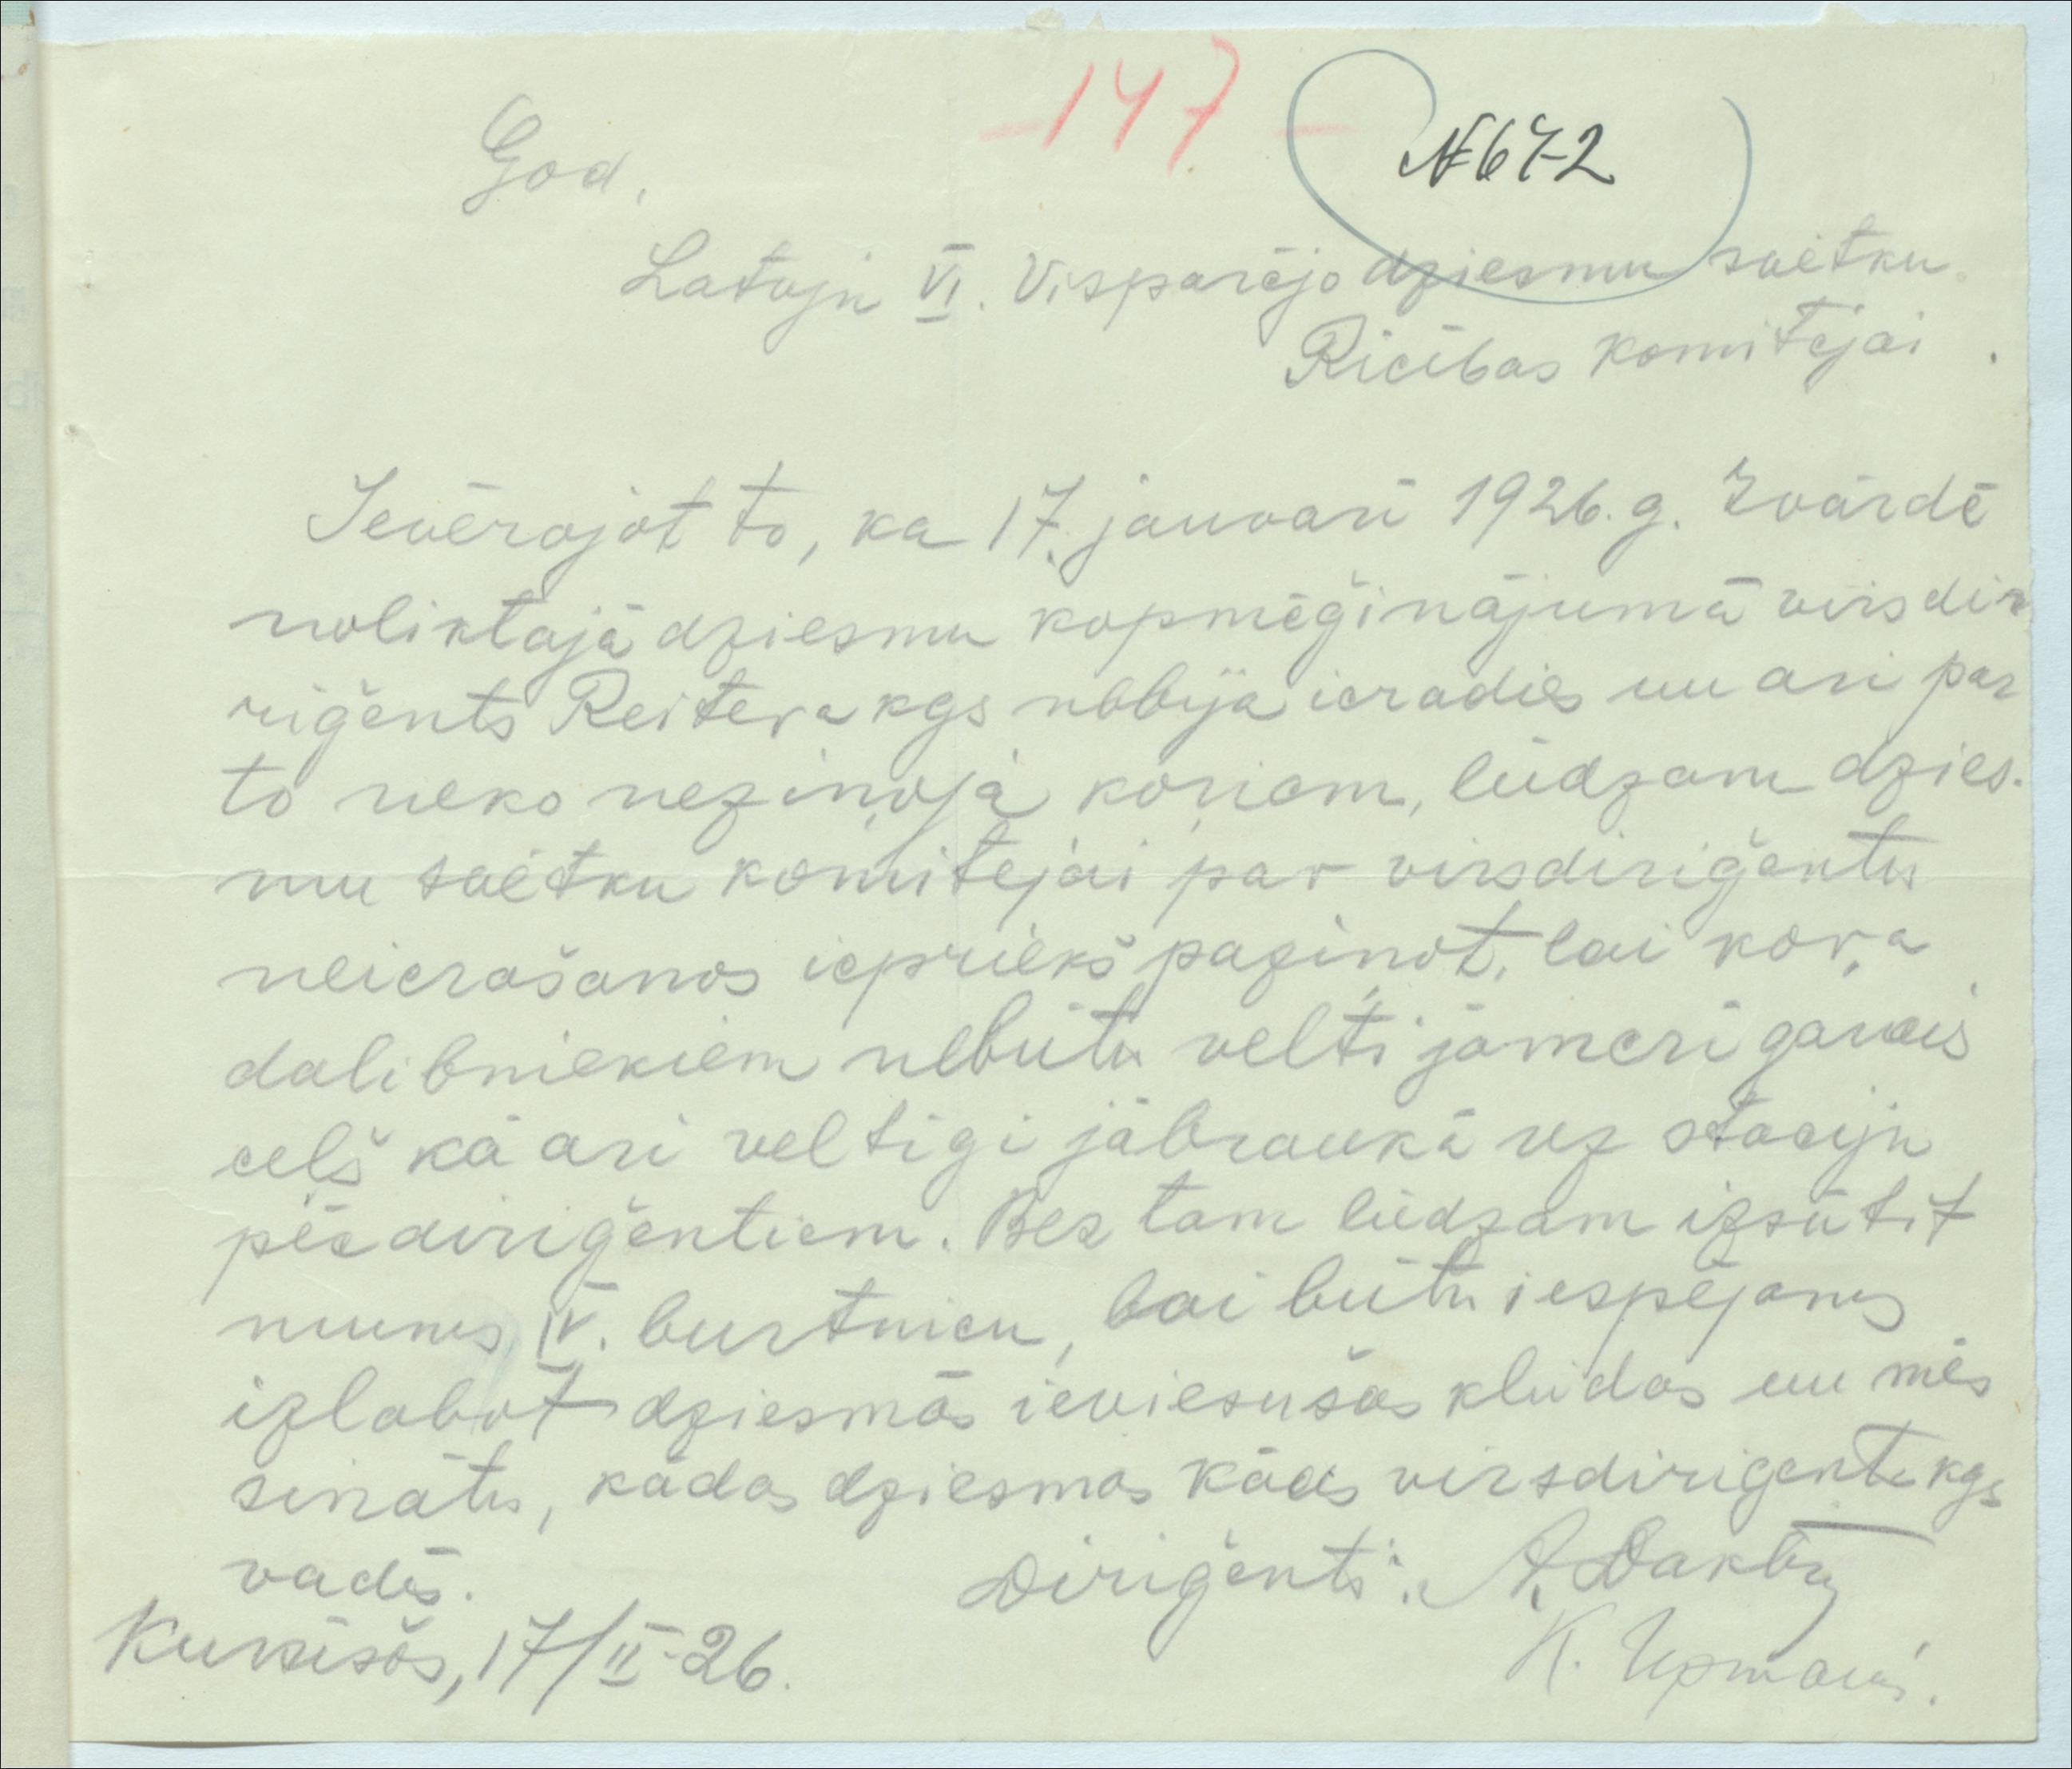 147
№672
God.
Latvju VI. Vispārējo dziesmu svētku
Rīcības Komitejai.
Ievērojot to, ka 17. janvarī 1926. g. Zvārdē
noliktajā dziesmu kopmēģinājumā virsdi-
riģents Reitera kgs nebija ieradies un ari par
to neko nezinoja koriem, lūdzam dzies-
mu svētku komitejai par virsdiriģentu
neierašanos iepriekš paziņot, lai koŗa
dalibniekiem nebūtu velti jāmēri garais
ceļš kā ari veltīgi jābraukā uz staciju
pēc diriģentiem. Bez tam lūdzam izsūtīt
mums IV. burtnicu, lai būtu iespējams
izlabot dziesmās ieviesušās kļūdas un mēs
sinātu, kādas dziesmas kāds virsdirigentu kgs
vadīs.
Diriģenti: A.
K. Upmanis.
17/II-26.